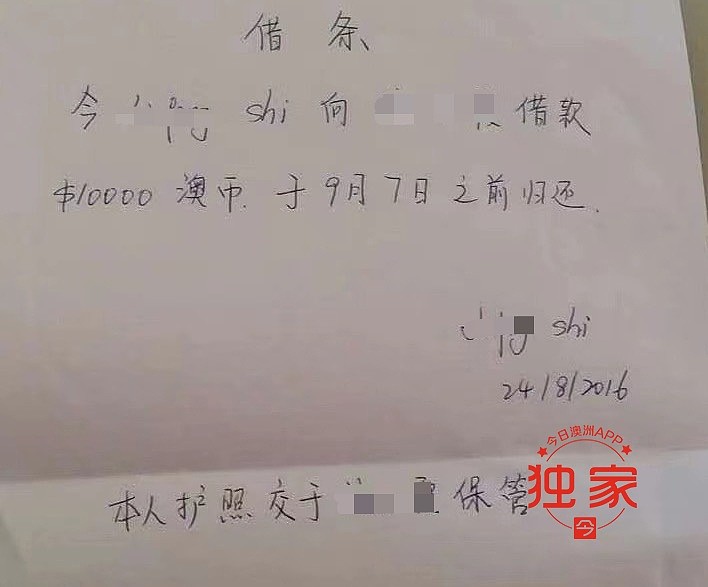 借条
今 shi 向 借款
$10000 澳币. 于9月7日之前归还.
shi
24/8/2016
本人护照交于 保管
今日澳洲APP
独家
今